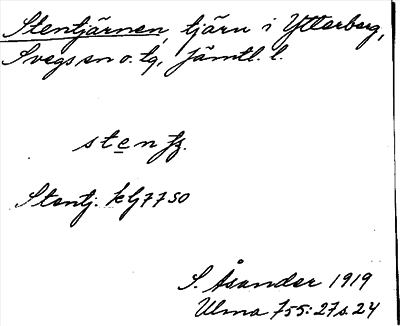 Stentjärnen, tjärn i Ytterberg,
Svegs sn o. tg, Jämtl. l.
stenfz.
Stentj. klj7750
S. Åsander 1919
Ulma 755: 27 s. 24